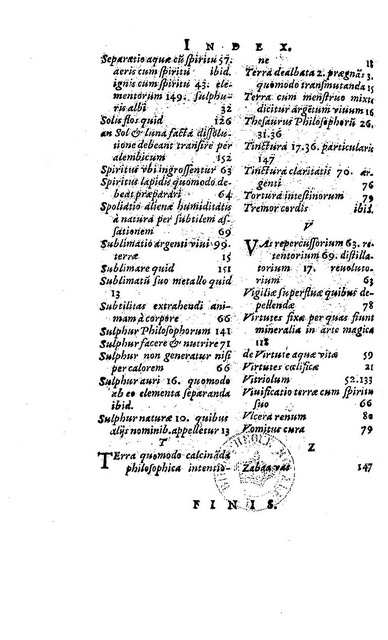 INDEX.
Separatio aquæ cũ spiritu 57.
aeris cum spiritu ibid.
ignis cum spiritu 43. ele-
mentorum 149. Sulphu-
ris albi 32
Solis flos quid 126
an Sol & luna facta dissolu-
tione debeant transire per
alembicum 152
Spiritus vbi ingrossentur 63
Spiritus lapidis quomodo de-
beāt præparari 64
Spoliatio alienæ humiditatis
à natura per subtilem as-
sationem 69
Sublimatio argenti viui 99.
terræ 15
Sublimare quid 151
Sublimatũ suo metallo quid
13
Subtilitas extrahendi ani-
mam à corpore 66
Sulphur Philosophorum 141
Sulphur facere & nutrire 71
Sulphur non generatur nisi
per calorem 66
Sulphur auri 16. quomodo
ab eo elementa separanda
ibid.
Sulphur naturæ 10. quibus
alijs nominib. appelletur 13
T
TErra quomodo calcinãda
philosophica intentio-
ne 18
Terra dealbata 2. prægnãs 3.
quomodo transmutanda 15
Terra cum menstruo mixta
dicitur argētum viuum 16
Thesaurus Philosophorũ 26.
31.36
Tinctura 17.36. particularis
147
Tinctura claritatis 70. ar-
genti 76
Tortura intestinorum 79
Tremor cordis ibid.
V
VAs repercussorium 63. re-
tentorium 69. distilla-
torium 17. reuoluto-
rium 63
Vigiliæ superfluæ quibus de-
pellendæ 78
Virtutes fixæ per quas fiunt
mineralia in arte magica
118
de Virtute aquæ vitæ 59
Virtutes cœlificæ 21
Vitriolum 52.133
Viuificatio terræ cum spiritu
suo 66
Vlcera renum 80
Vomitus cura 79
Z
Zaibac vas 147
FINIS.